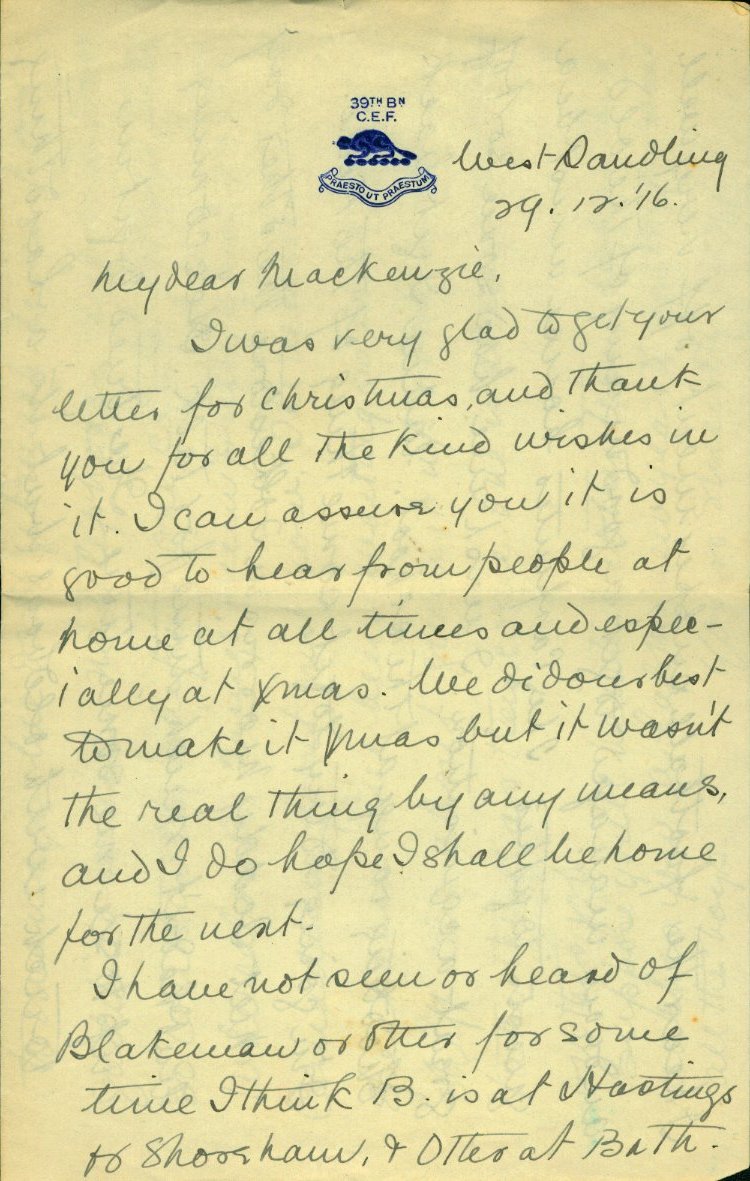 39TH BN
C.E.F.
PRAESTO UT PRAESTUM
West Sandling
29.12.'16.
My dear Mackenzie,
I was very glad to get your
letter for Christmas, and thank
you for all the kind wishes in
it. I can assure you it is
good to hear from people at
home at all times and espec-
ially at Xmas. We did our best
to make it Xmas but it wasn't
the real thing by any means,
and I do hope I shall be home
for the next.
I have not seen or heard of
Blakeman or Otter for some
time I think B. is at Hastings
or Shoreham, & Otter at Bath.